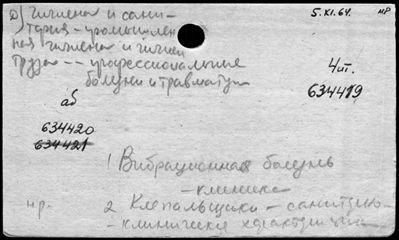 д) гигиена и сани-
тария – промышлен-
ная гигиена и гигиен
труда -- профессиональные
болезни и травматизм
5.XI.64.
нр
4ит.
634419
аб
634420
634421
1 Вибрационная болезнь
– клиника
нр.
2 Клепальщики – санитарно-
– клиническая характеристика